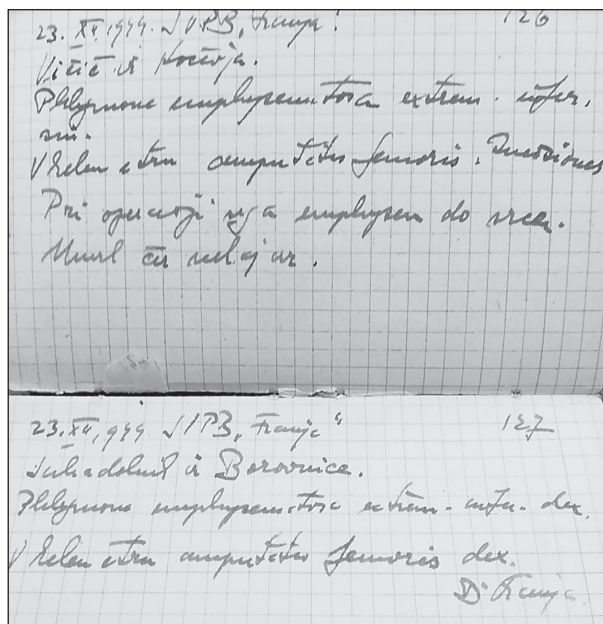 23. XII. 1944. SVPB „Franja“ 126
Vičič iz
Phlegmone emphysematosa extrem. infer.
sin.
V helen etru amputatio femoris. Incisiones
Pri operaciji sega emphysem do
Umrl čez nekaj ur.
23. XII. 1944. SVPB „Franja“ 127
Suhadolnik iz Borovnice.
Phlegmone emphysematosa extrem. infer. dex.
V helen etru amputatio femoris dex.
Dr Franja